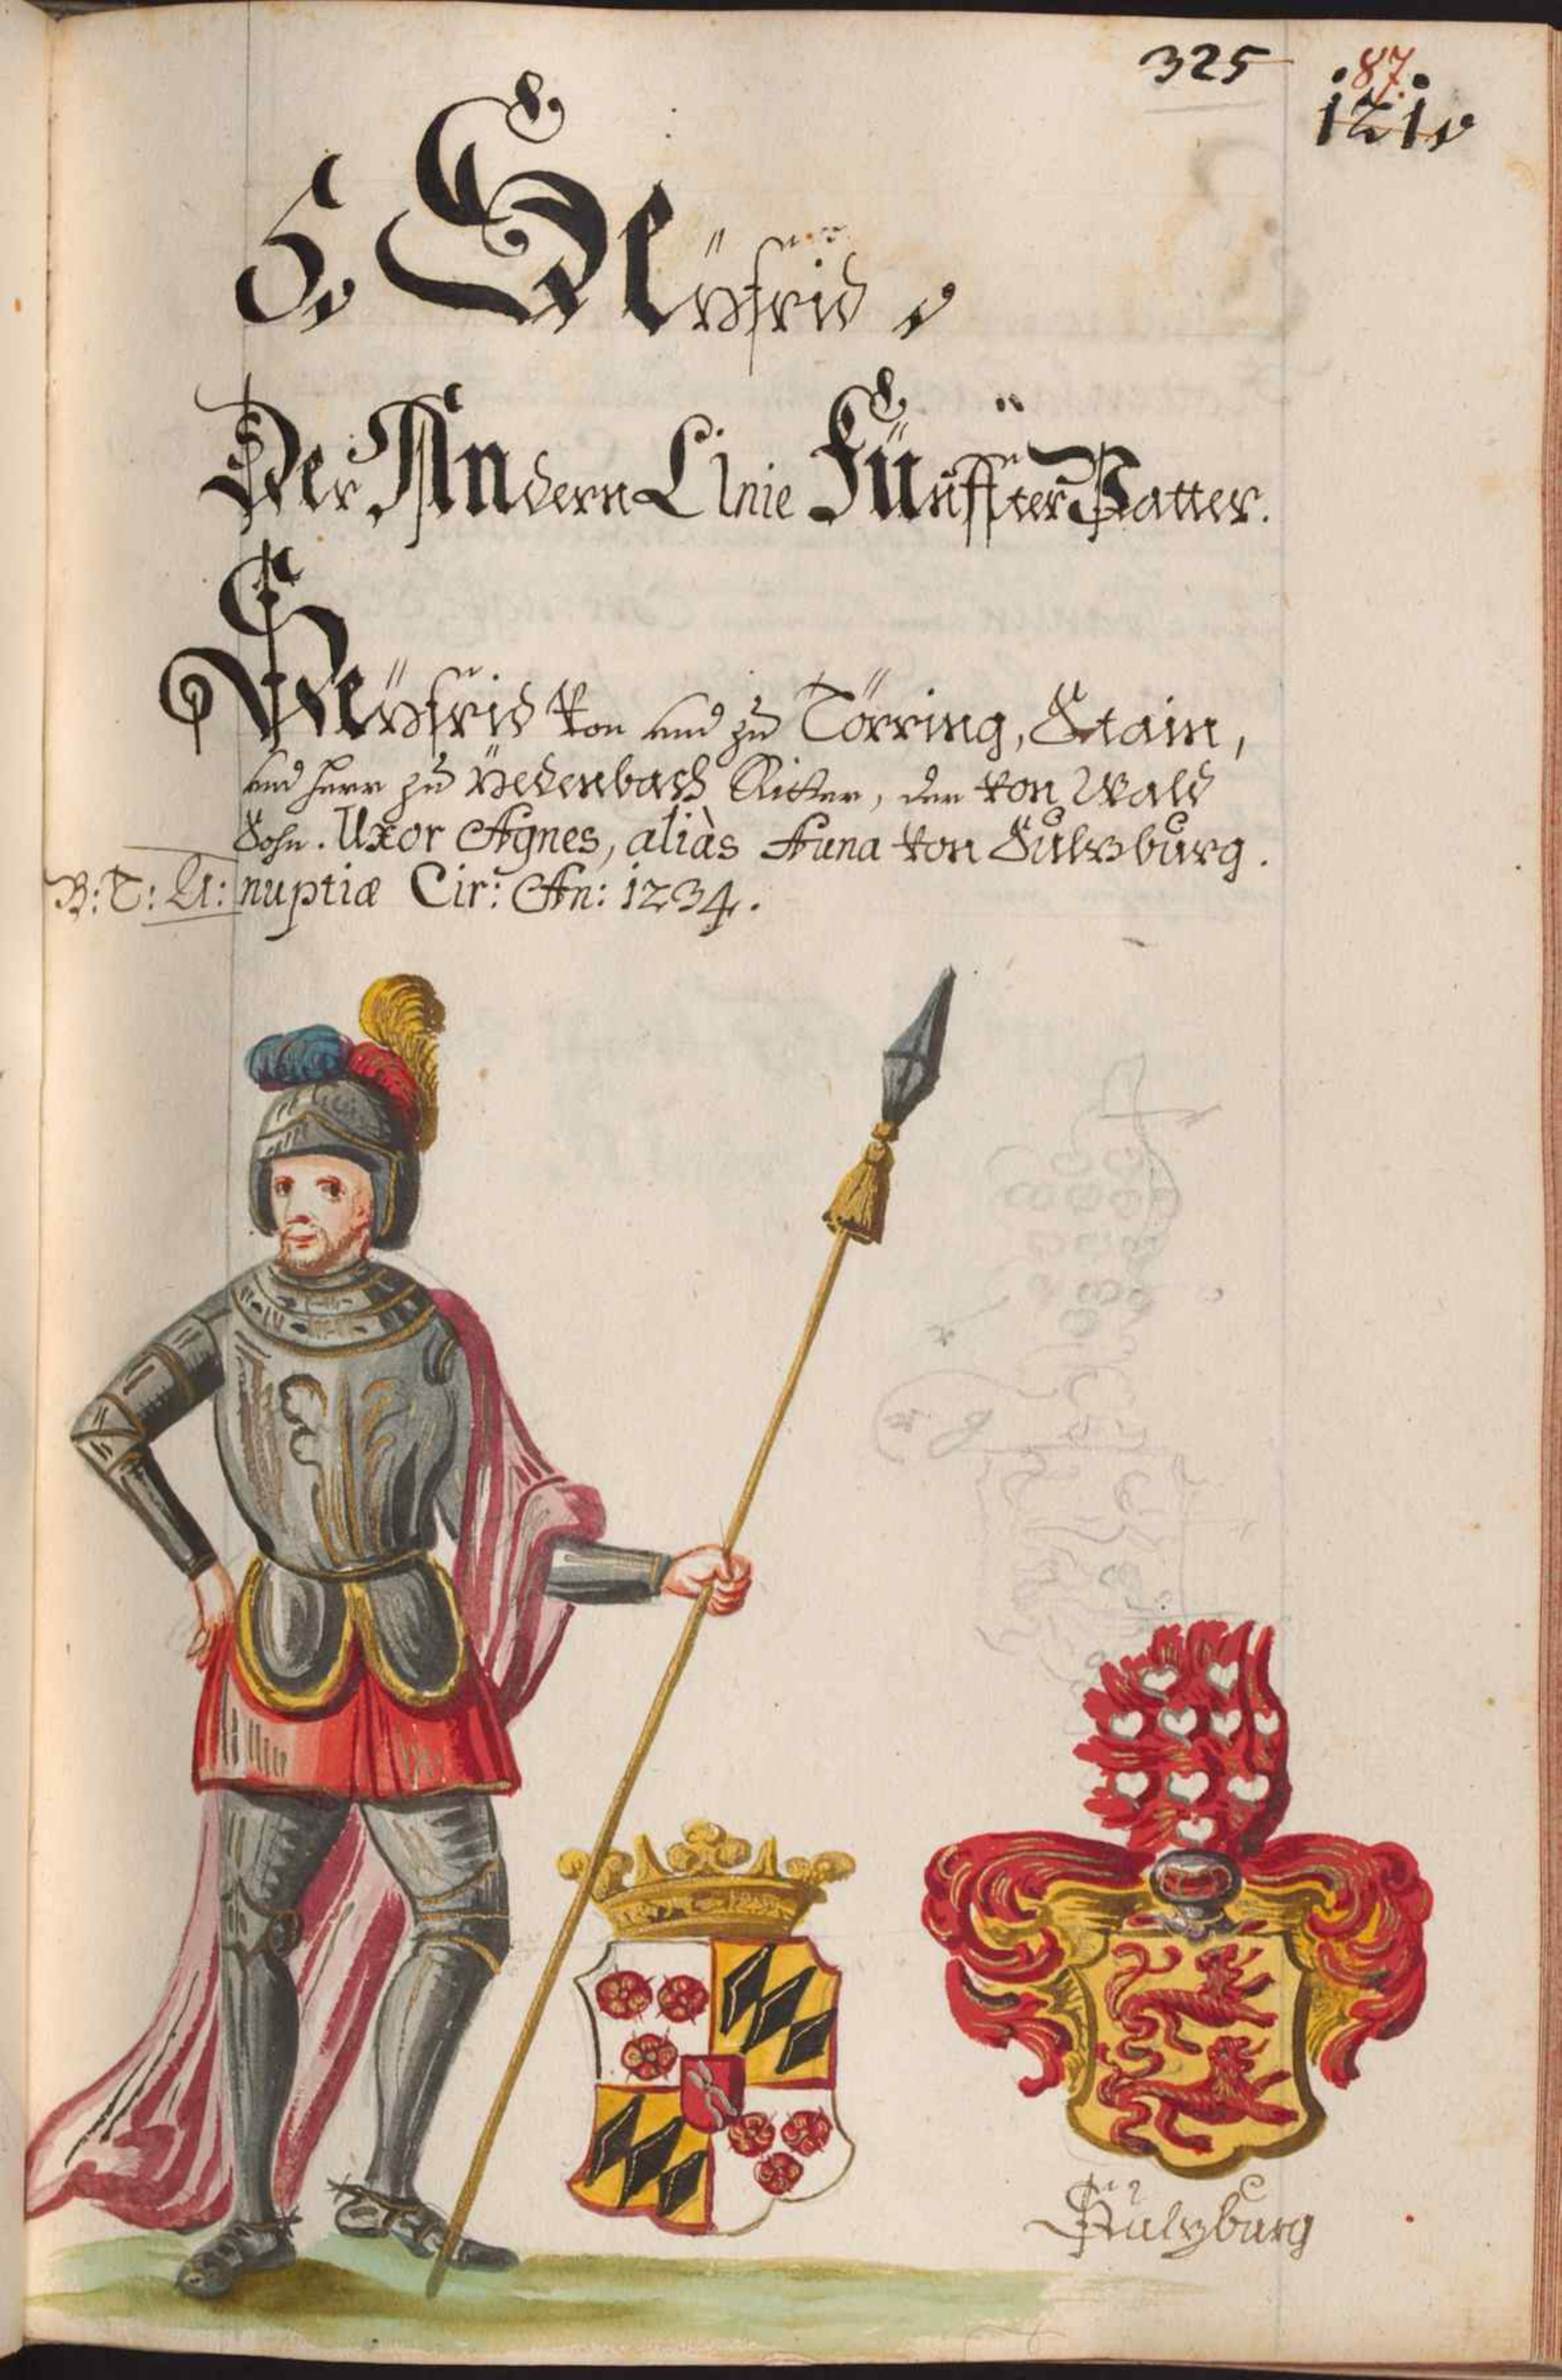 325
87.
121.
5. Seÿfrid,
Der Andern Linie Fünffter Vatter.
Seÿfrid Von und zu Törring, Stain,
und Herr zu Uedenbach Ritter, der von Wald
Sohn. Uxor Agnes, aliàs Anna von Sulzburg.
B: T: A: nuptiæ Cir: An: 1234.
Sulzburg